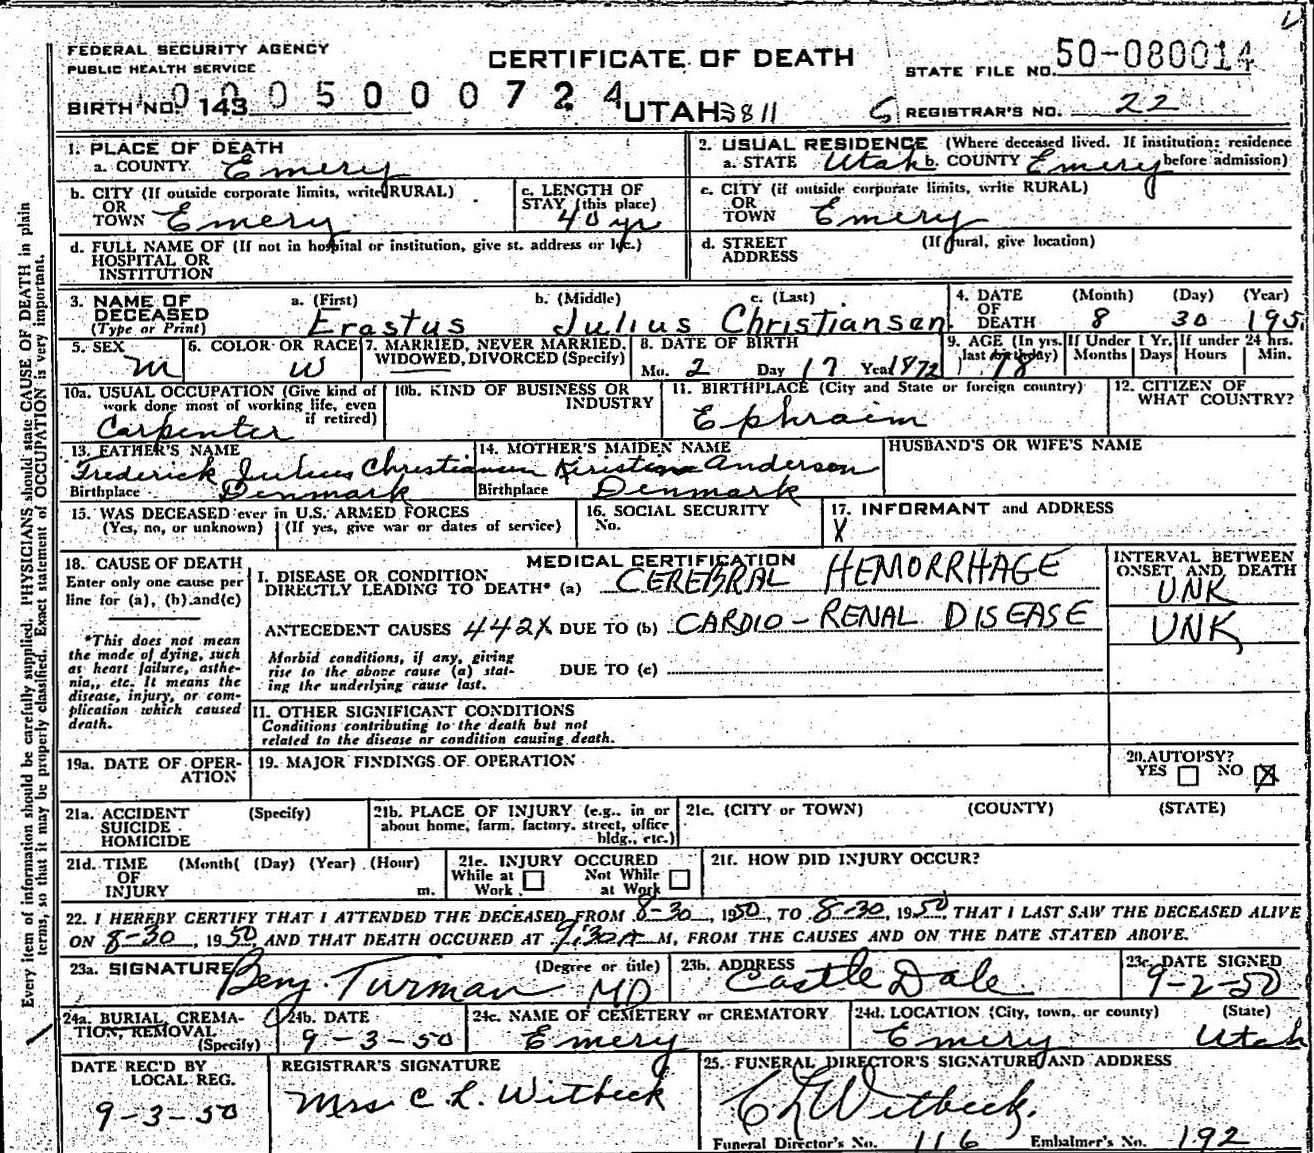 FEDERAL SECURITY AGENCY
PUBLIC HEALTH SERVICE
CERTIFICATE OF DEATH
STATE FILE NO. 50-080014
BIRTH NO. 143
0005000724
UTAH 3811
REGISTRAR'S NO. 22
1. PLACE OF DEATH
a. COUNTY Emery
2. USUAL RESIDENCE (Where deceased lived. If institution: residence before admission)
a. STATE Utah b. COUNTY Emery
b. CITY (If outside corporate limits, write RURAL)
OR
TOWN Emery
c. LENGTH OF
STAY (this place)
40 yr
c. CITY (if outside corporate limits, write RURAL)
OR
TOWN Emery
d. FULL NAME OF (If not in hospital or institution, give st. address or loc.)
HOSPITAL OR
INSTITUTION
d. STREET (If rural, give location)
ADDRESS
3. NAME OF
DECEASED
(Type or Print)
a. (First) b. (Middle) c. (Last)
Erastus Julius Christiansen
4. DATE (Month) (Day) (Year)
OF
DEATH 8 30 195
5. SEX
M
6. COLOR OR RACE
W
7. MARRIED, NEVER MARRIED,
WIDOWED, DIVORCED (Specify)
8. DATE OF BIRTH
Mo. 2 Day 17 Year 1872
9. AGE (In yrs.
last birthday)
78
If Under 1 Yr.
Months Days
If under 24 hrs.
Hours Min.
10a. USUAL OCCUPATION (Give kind of
work done most of working life, even
if retired)
Carpenter
10b. KIND OF BUSINESS OR
INDUSTRY
11. BIRTHPLACE (City and State or foreign country)
Ephraim
12. CITIZEN OF
WHAT COUNTRY?
13. FATHER'S NAME
Frederick Julius Christiansen
Birthplace Denmark
14. MOTHER'S MAIDEN NAME
Kirstina Anderson
Birthplace Denmark
HUSBAND'S OR WIFE'S NAME
15. WAS DECEASED ever in U.S. ARMED FORCES
(Yes, no, or unknown) (If yes, give war or dates of service)
16. SOCIAL SECURITY
No.
17. INFORMANT and ADDRESS
X
18. CAUSE OF DEATH
Enter only one cause per
line for (a), (b) and (c)
*This does not mean
the mode of dying, such
as heart failure, asthe-
nia,, etc. It means the
disease, injury, or com-
plication which caused
death.
MEDICAL CERTIFICATION
I. DISEASE OR CONDITION
DIRECTLY LEADING TO DEATH* (a) CEREBRAL HEMORRHAGE
ANTECEDENT CAUSES 442X DUE TO (b) CARDIO-RENAL DISEASE
Morbid conditions, if any, giving
rise to the above cause (a) stat-
ing the underlying cause last.
DUE TO (c)
INTERVAL BETWEEN
ONSET AND DEATH
UNK
UNK
11. OTHER SIGNIFICANT CONDITIONS
Conditions contributing to the death but not
related to the disease or condition causing death.
19a. DATE OF OPER-
ATION
19. MAJOR FINDINGS OF OPERATION
20. AUTOPSY?
YES NO X
21a. ACCIDENT (Specify)
SUICIDE
HOMICIDE
21b. PLACE OF INJURY (e.g., in or
about home, farm, factory, street, office
bldg., etc.)
21c. (CITY or TOWN) (COUNTY) (STATE)
21d. TIME (Month( (Day) (Year) (Hour)
OF
INJURY m.
21e. INJURY OCCURED
While at Not While
Work at Work
21f. HOW DID INJURY OCCUR?
22. I HEREBY CERTIFY THAT I ATTENDED THE DECEASED FROM 8-30, 1950, TO 8-30, 1950, THAT I LAST SAW THE DECEASED ALIVE
ON 8-30, 1950 AND THAT DEATH OCCURED AT 9:30 A M, FROM THE CAUSES AND ON THE DATE STATED ABOVE.
23a. SIGNATURE (Degree or title)
Benj. Turman MD
23b. ADDRESS
Castle Dale
23c. DATE SIGNED
9-2-50
24a. BURIAL, CREMA-
TION, REMOVAL
(Specify)
24b. DATE
9-3-50
24c. NAME OF CEMETERY or CREMATORY
Emery
24d. LOCATION (City, town, or county) (State)
Emery Utah
DATE REC'D BY
LOCAL REG.
9-3-50
REGISTRAR'S SIGNATURE
Mrs C. L. Witbeck
25. FUNERAL DIRECTOR'S SIGNATURE AND ADDRESS
C L Witbeck.
Funeral Director's No. 116 Embalmer's No. 192
Every item of information should be carefully supplied. PHYSICIANS should state CAUSE OF DEATH in plain
terms, so that it may be properly classified. Exact statement of OCCUPATION is very important.